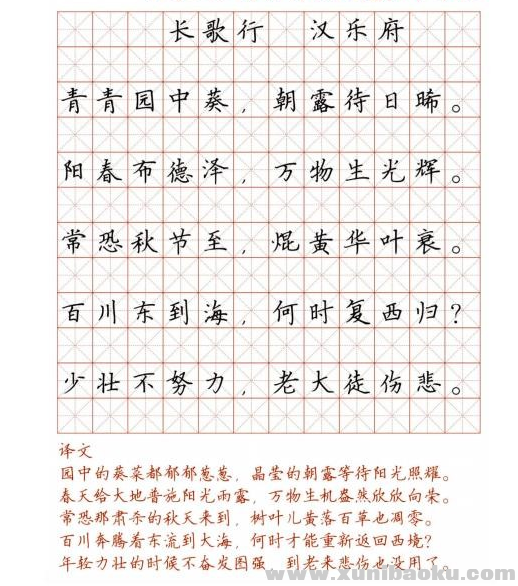 长歌行 汉乐府
青青园中葵，朝露待日晞。
阳春布德泽，万物生光辉。
常恐秋节至，焜黄华叶衰。
百川东到海，何时复西归？
少壮不努力，老大徒伤悲。
译文
园中的葵菜都郁郁葱葱，晶莹的朝露等待阳光照耀。
春天给大地普施阳光雨露，万物生机盎然欣欣向荣。
常恐那肃杀的秋天来到，树叶儿黄落百草也凋零。
百川奔腾着东流到大海，何时才能重新返回西境？
年轻力壮的时候不奋发图强 到老来悲伤也没用了。
www.xunibaoku.com